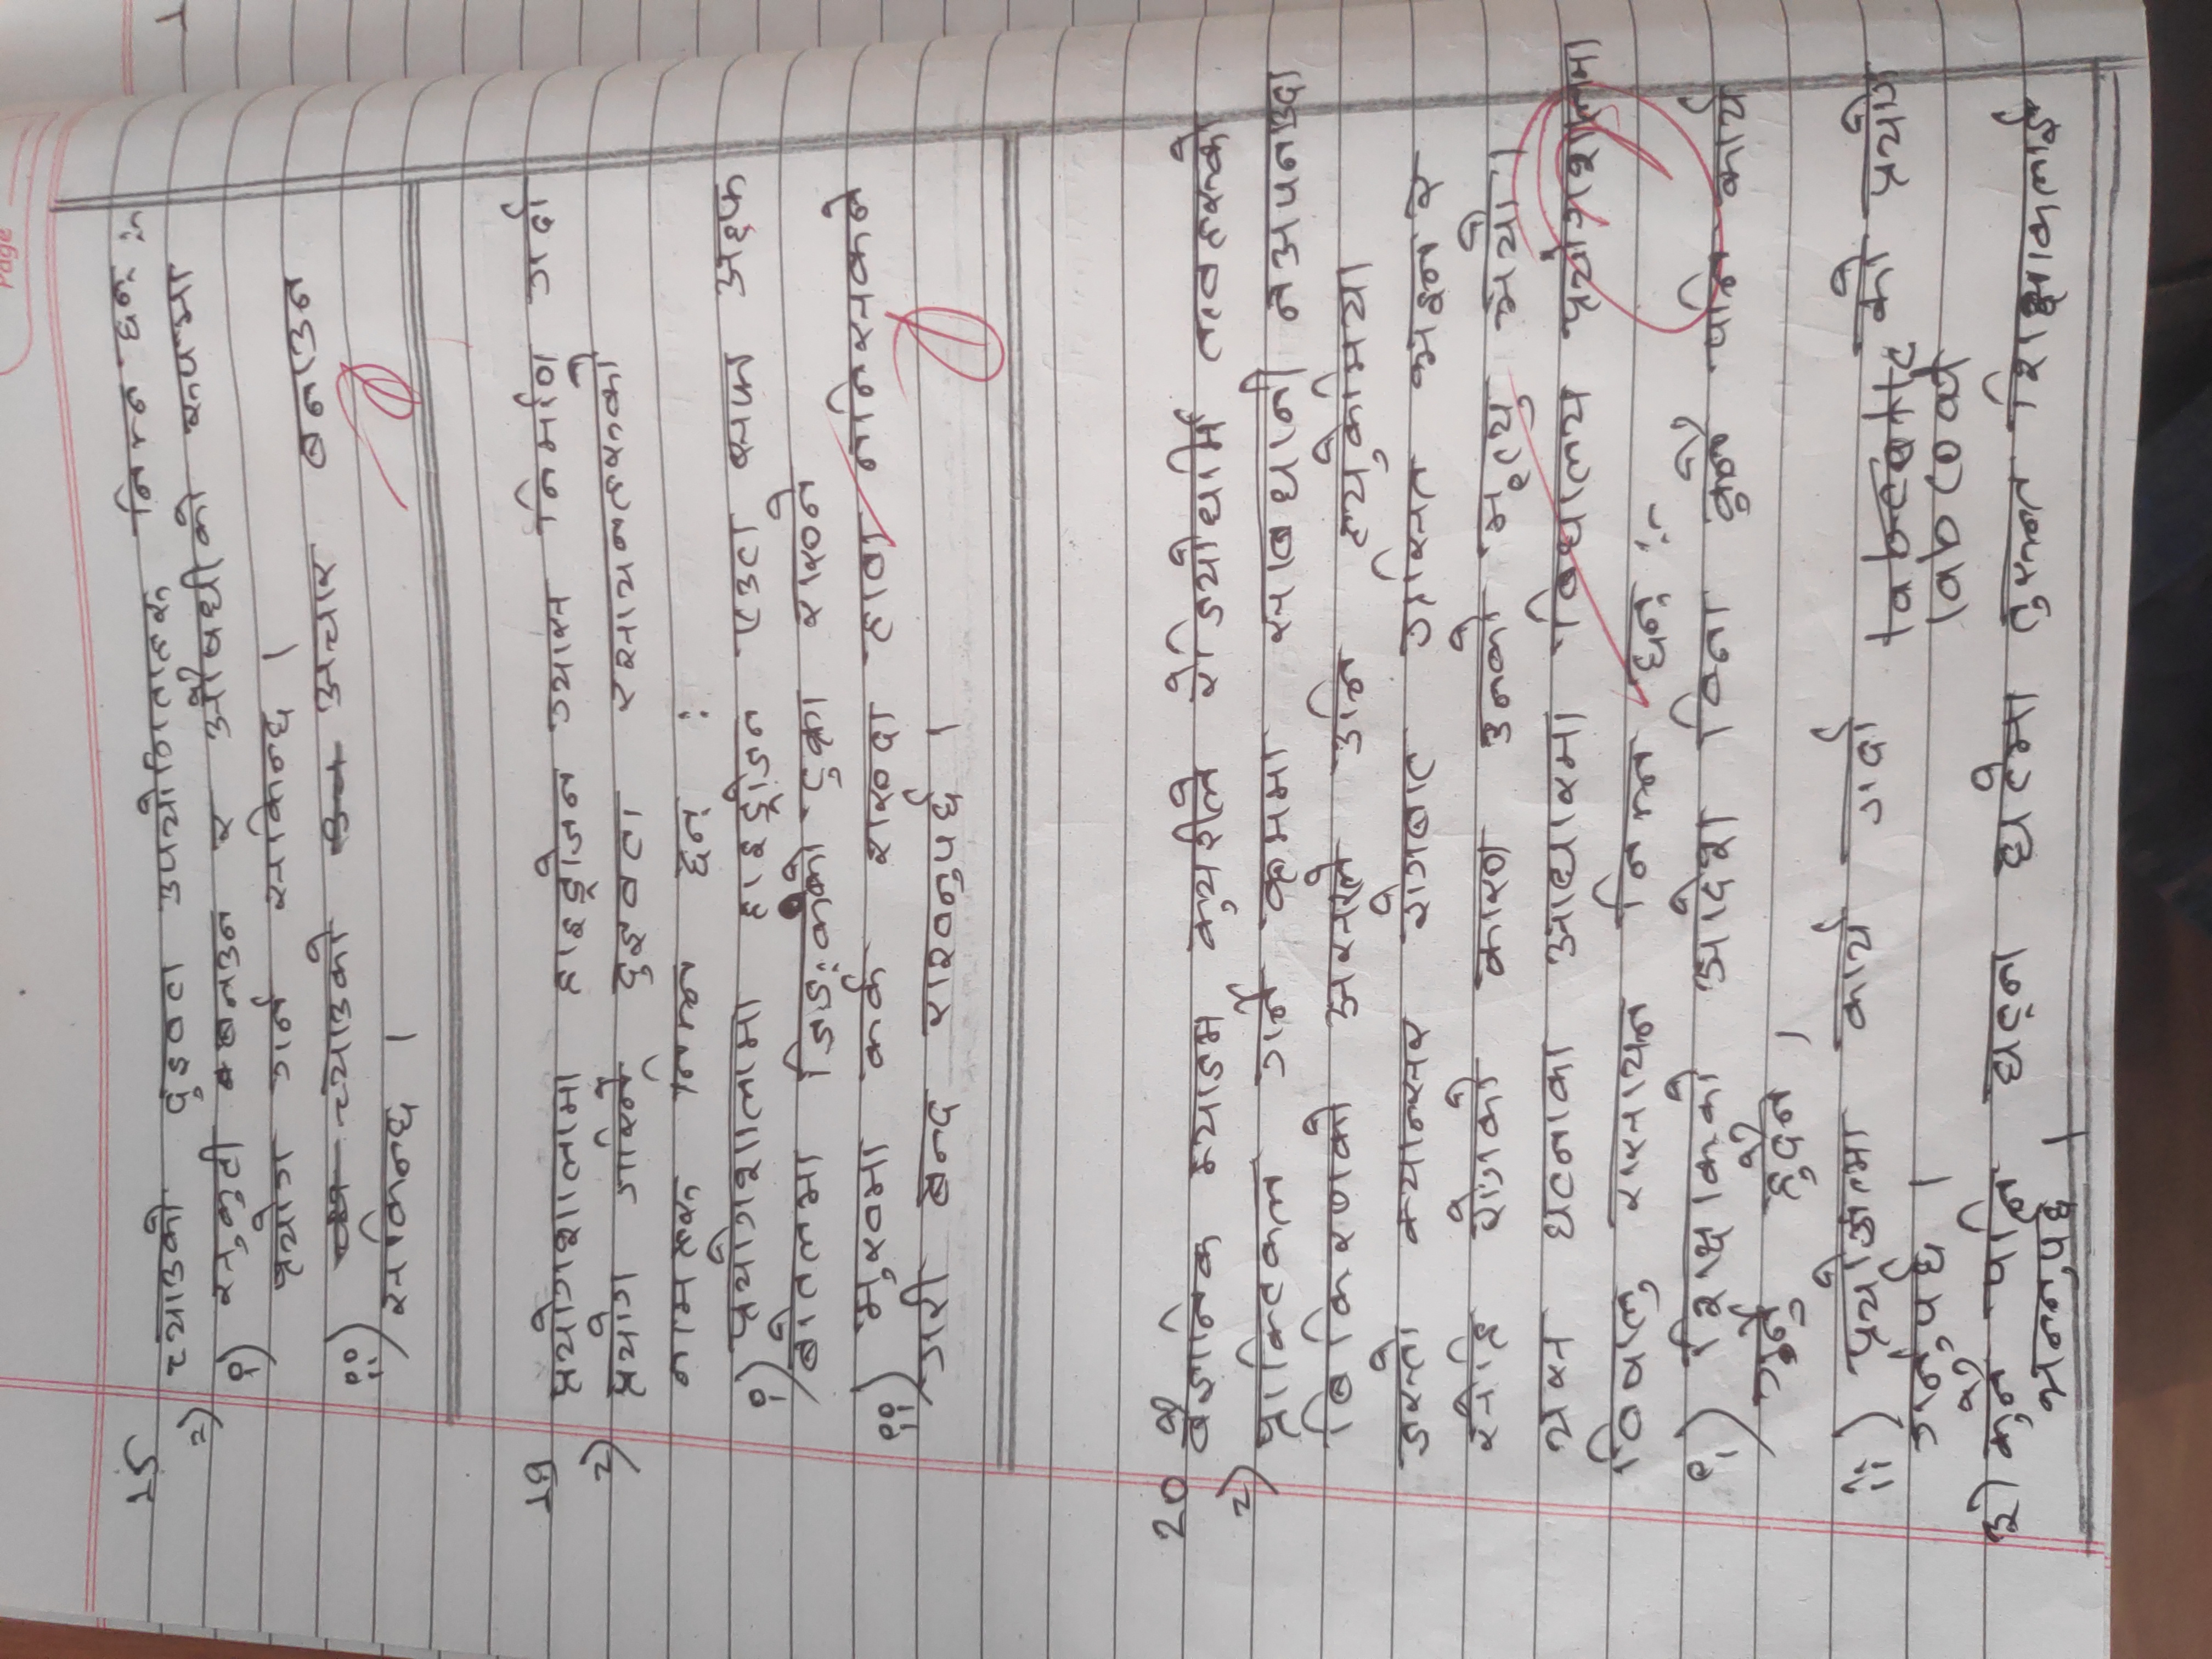 Page
15
च्याउको दुइवटा उपयोगिताहरु निम्न छन् :-
2)
i) सुकुटी बनउन र औषधीको रुपमा
प्रयोग गर्न सकिन्छ ।
ii) च्याउको अचार बनाउन
सकिन्छ ।
19
प्रयोगशालामा हाइड्रोजन ग्यास निर्माण गर्दा
2) प्रयोग गरिने दुइवटा रसायनहरुको
नामहरु निम्न छन् :
i) प्रयोगशालामा हाइड्रोजन एउटा साफ
बोतलमा जिङ्कको टुक्रा राख्ने
ii) मुखमा कर्क राख्दा हावा ननिस्कने
गरी बन्द राख्नुपर्छ ।
20 वैज्ञानिक म्याडम कुयरीले रेडियोधर्मि तत्वहरुको
2) प्राक्टिकल गर्ने क्रममा साबधानी नअपनाउदा
बिकिरणको असरले उनि ल्युकेमिया
जस्तो क्यान्सर रोगबाट ग्रसित भइन र
सोहि रोगको कारण उनको मृत्यु भयो ।
यस घटनाका आधारमा बिधालय प्रयोगशालामा
विषालु रासायन निम्न छन् :-
i) शिक्षकको आदेश विना कुनै पनि कार्य
गर्नु हुदैन ।
ii) प्रयोजलमा कार्य गर्दा को प्रयोग
गर्नुपर्छ । lab coat
३) कुनै पनि घट्ना घटेमा तुरुन्त शिक्षकलाई
भन्नुपर्छ ।